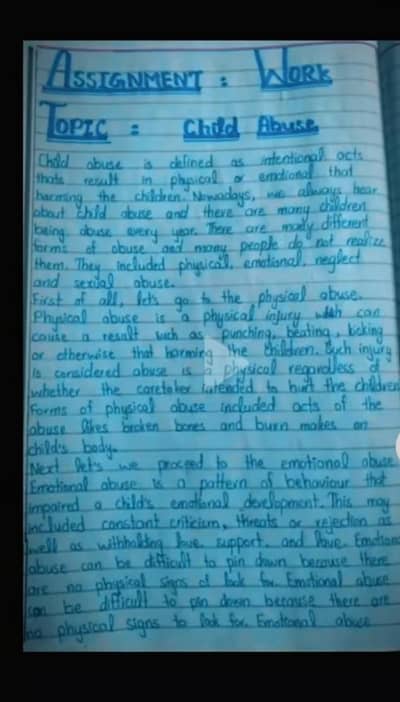 ASSIGNMENT : WORK
TOPIC : Child Abuse
Child abuse is defined as intentional acts
thats result in physical or emotional that
harming the children. Nowadays, we always hear
about child abuse and there are many children
being abuse every year. There are many different
forms of abuse and many people do not realize
them. They included physical, emotional, neglect
and sexual abuse.
First of all, let's go to the physical abuse.
Physical abuse is a physical injury can
cause a result such as punching, beating,
or otherwise that harming the children. Such injury
is considered abuse is a physical regardless of
whether the caretaker intended to hurt the children
Forms of physical abuse included acts of the
abuse likes broken bones and burn makes on
child's body.
Next let's we proceed to the emotional abuse
Emotional abuse is a pattern of behaviour that
impaired a child's emotional development. This may
included constant criticism, threats or rejection as
well as withholding love, support, and love. Emotional
abuse can be difficult to pin down because there
are no physical signs look for. Emotional abuse
can be difficult to pin down because there are
no physical signs to look for. Emotional abuse